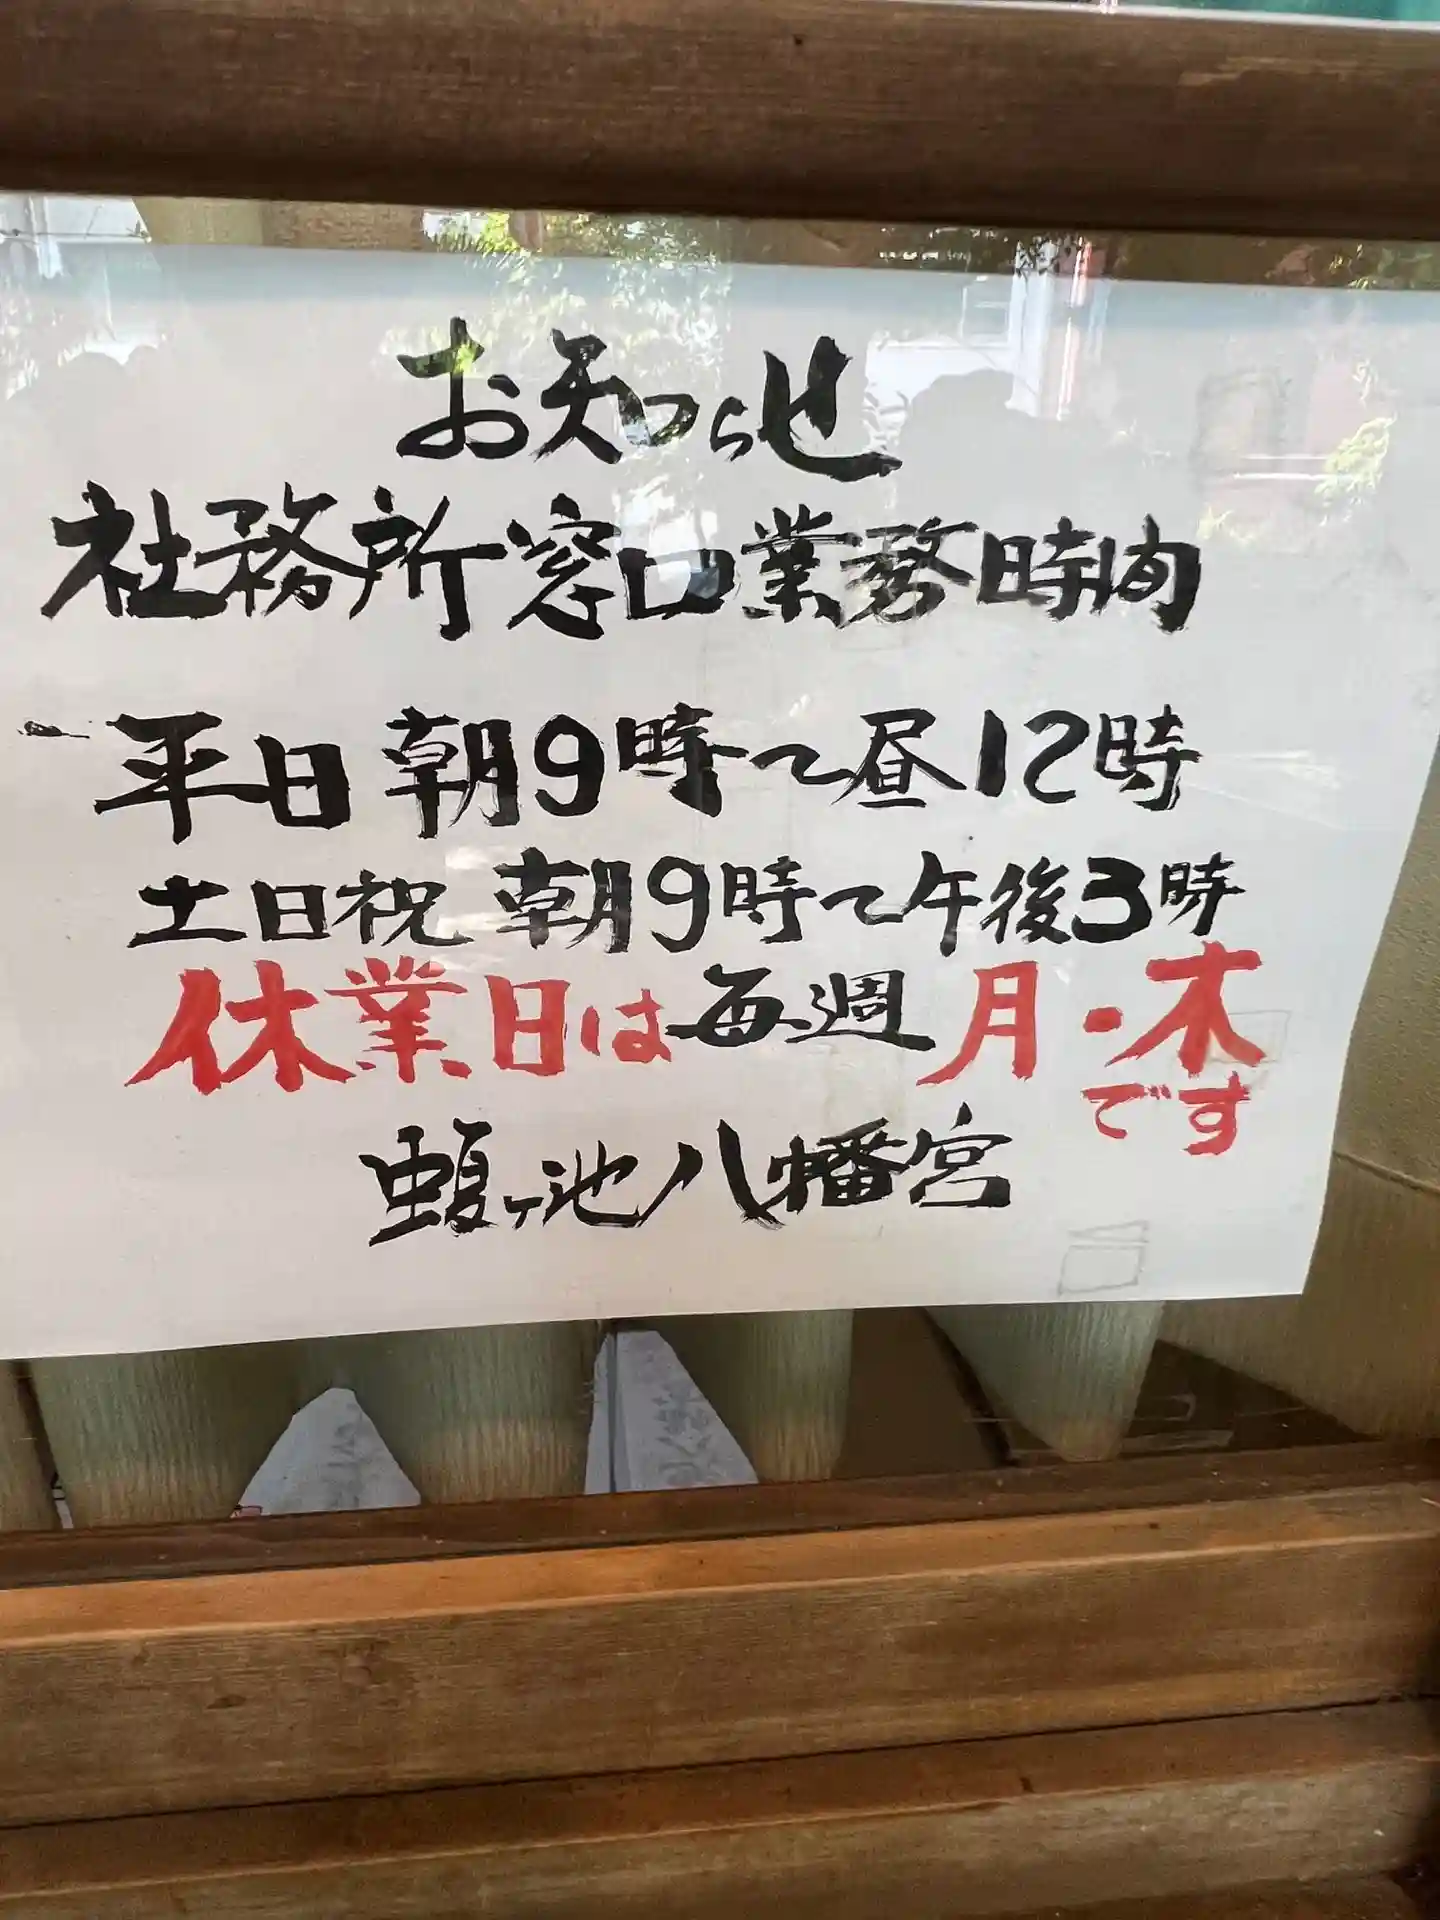 お知らせ
社務所窓口業務時間
平日 朝9時〜昼12時
土日祝 朝9時〜午後3時
休業日は毎週 月・木
です
蝮ヶ池八幡宮